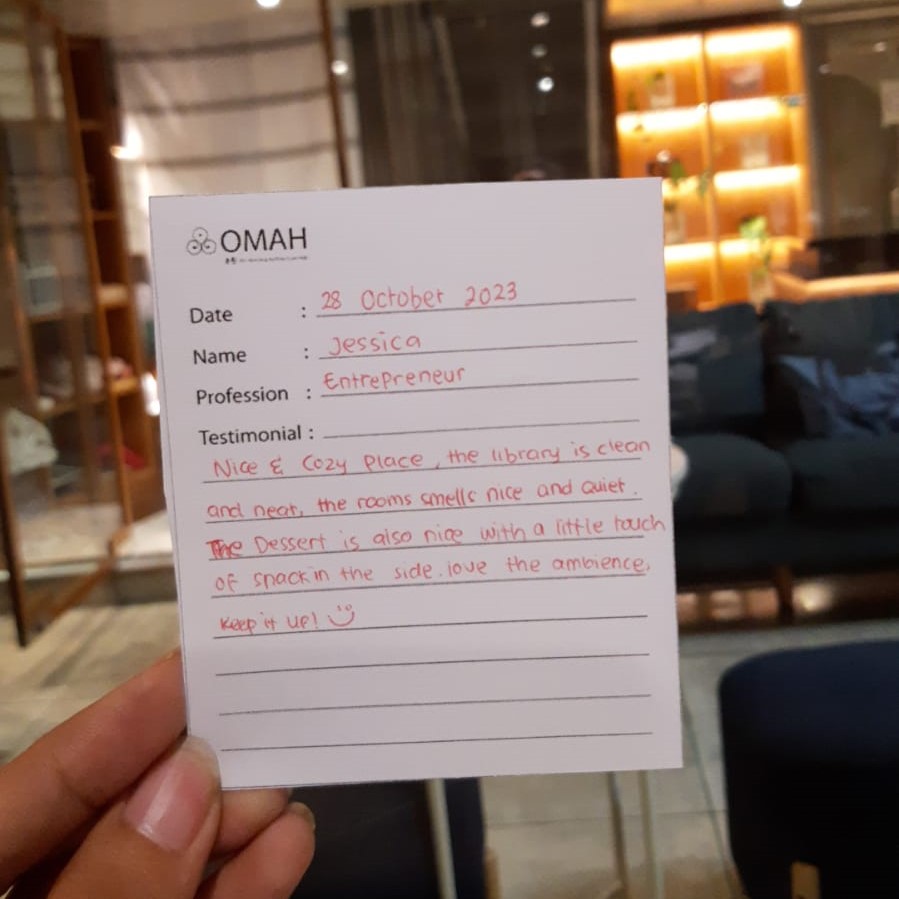 OMAH
Date : 28 October 2023
Name : Jessica
Profession : Entrepreneur
Testimonial :
Nice & Cozy Place, the library is clean
and neat, the rooms smells nice and quiet.
The Dessert is also nice with a little touch
of snack in the side. love the ambience,
keep it up!